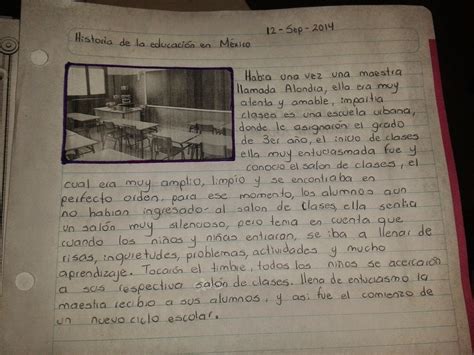 12-Sep-2014
Historia de la educación en México
Había una vez una maestra
llamada Alondra, ella era muy
atenta y amable, impartía
clases en una escuela urbana,
donde le asignarón el grado
de 3er año, el inicio de clases
ella muy entuciasmada fue y
conocio el salon de clases, el
cual era muy amplio, limpio y se encontraba en
perfecto orden, para ese momento, los alumnos aun
no habian ingresado al salon de clases, ella sentia
un salón muy silencioso, pero tenia en cuenta que
cuando los niños y niñas entraran, se iba a llenar de
risas, inquietudes, problemas, actividades y mucho
aprendizaje. Tocarón el timbre, todos los niños se acercarón
a sus respectiva salón de clases. llena de entuciasmo la
maestra recibio a sus alumnos, y asi fue el comienzo de
un nuevo ciclo escolar.